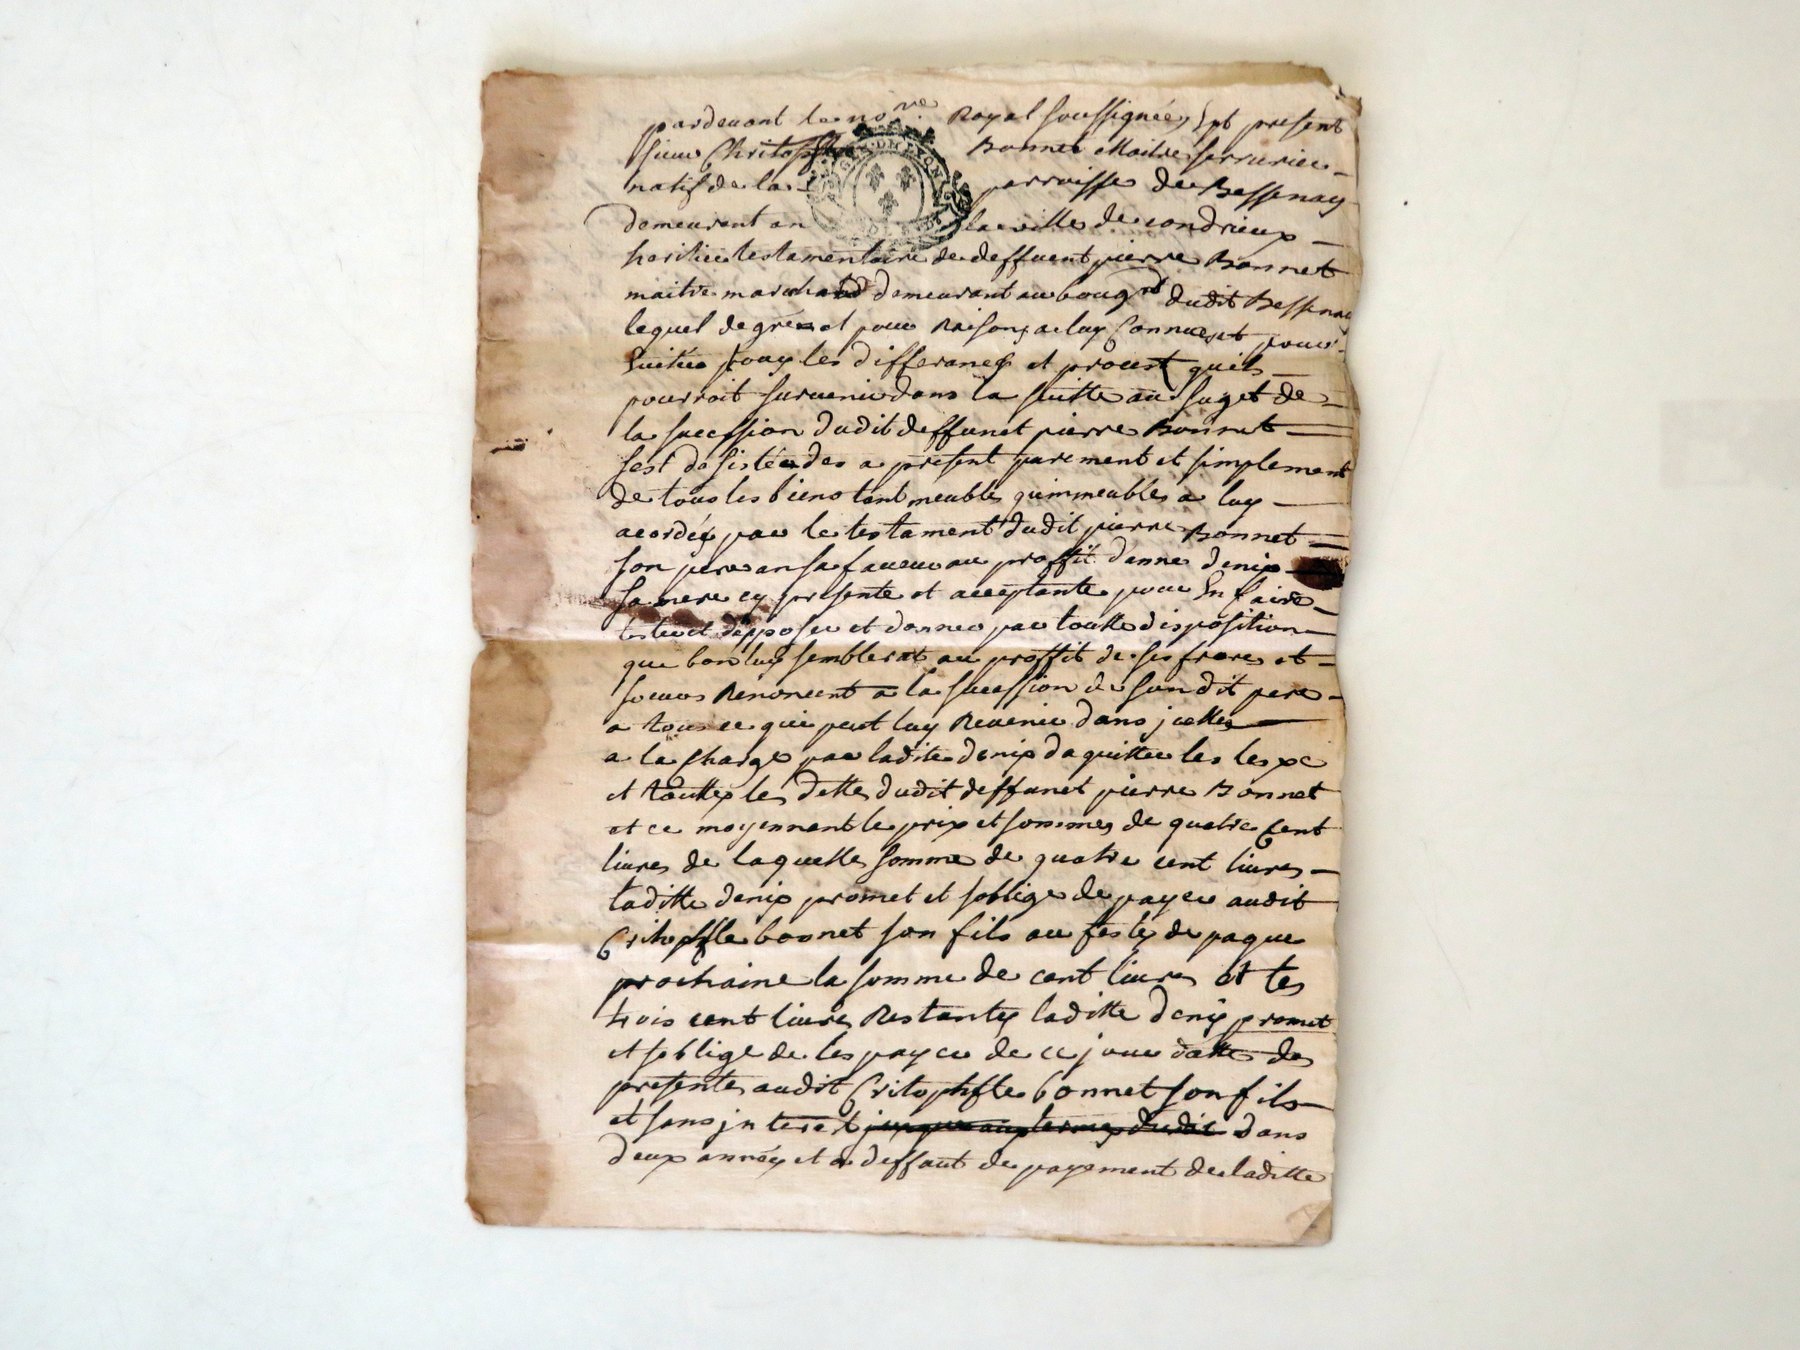 pardevant le no.re Royal soussignée Est present
sieur Christophle Bonnet Maitre serrurier
natif de la parroisse de Bessenay
GEN DE LYON
demeurant an la ville de condrieux
heritier testamentaire de deffunt pierre Bonnet
maitre marchand demeurant au bourg dudit Bessenay
lequel de gré et pour Raisons a luy Connues et pour
Eviter tous les differans et procest quil
pourroit survenir dans la suitte au suget de
la sucession dudit deffunct pierre Bonnet
sest desisté des a present purement et simplement
de tous les biens tant meubles quimmeubles a luy
acordés par le testament dudit pierre Bonnet
son pere an sa faveur au proffit danne denis
sa mere cy presente et acceptante pour En faire
et depposer et donner par toutte disposition
que bon luy semblerat au proffit de ses freres et
soeurs Renoncent a la sucession de sondit pere
a tous ce qui peut luy Revenir dans jcelle
a la charge par ladite denis daquitter les
et touttes les dettes dudit deffunct pierre Bonnet
et ce moyennent le prix et sommes de quatre Cent
livres de laquelle somme de quatre cent livres
laditte denis promet et soblige de payer audit
Critophfle bonnet son fils au festes de paque
prochaine la somme de cent livres et les
trois cent livres Restantes laditte denis promet
et soblige de les payer de ce jour datte des
presentes audit Critophfle bonnet son fils
et sans jnteret dans
deux années et a deffaut de payement de laditte